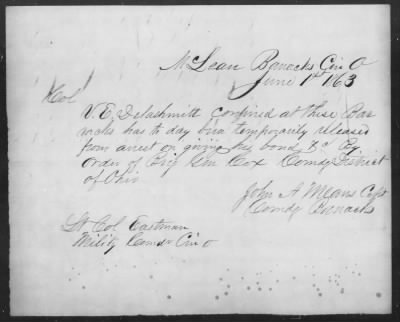 McLean Barracks Cin O
June 1st /63
Col
V. E. Delashmitt confined at these Bar
racks has to day been temporarily released
from arrest on giving his bond &c By
Order of Brig Gen Cox Comdg District
of Ohio
John A Means Capt
Comdg Barracks
Lt Col Eastman
Mility Comdr Cin O